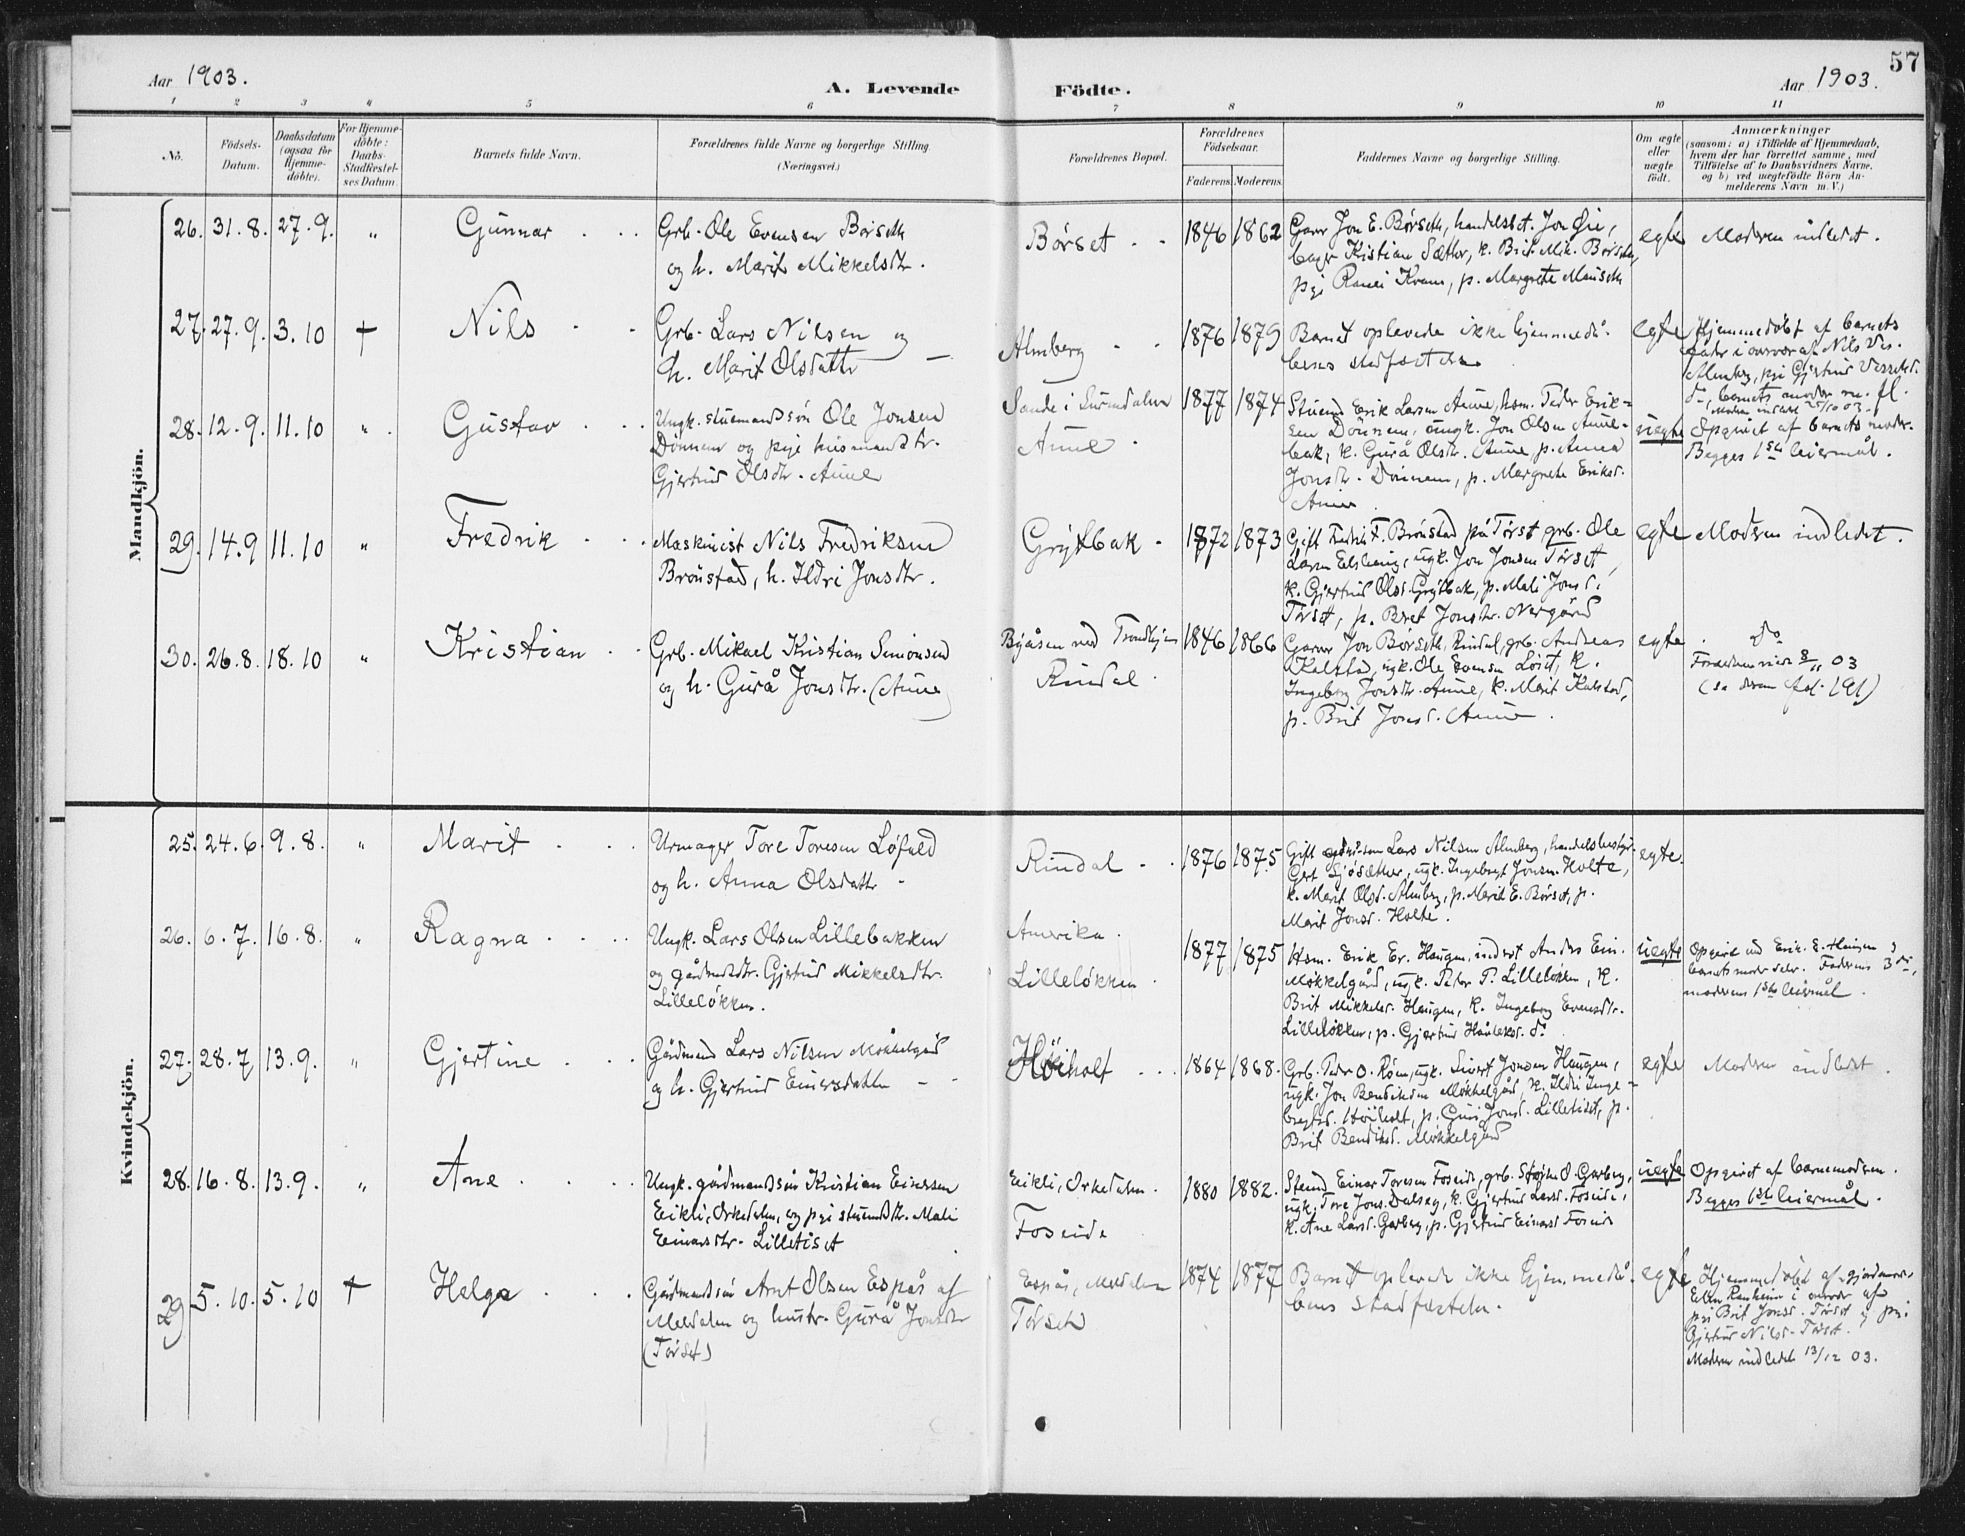 57
Aar 1903.
A. Levende Födte.
Aar 1903.
1 2 3 4 5 6 7 8 9 10 11
No.
Födsels-
Datum.
Daabsdatum
(ogsaa för
Hjemme-
döbte).
For Hjemme-
döbte:
Daabs-
Stadfæstel-
ses Datum.
Barnets fulde Navn.
Forældrenes fulde Navne og borgerlige Stilling.
(Næringsvei.)
Forældrenes Bopæl.
Forældrenes
Födselsaar.
Faderens. Moderens.
Faddernes Navne og borgerlige Stilling.
Om ægte
eller
uægte
födt.
Anmærkninger
(saasom: a) i Tilfælde af Hjemmedaab,
hvem der har forrettet samme, med
Tilföielse af to Daabsvidners Navne,
og b) ved uægtefödte Börn An-
melderens Navn m. V.)
Mandkjön.
26. 31.8. 27.9. „ Gunnar
Grb. Ole Evensen Børseth
og h. Marit Mikkelsdtr.
Børset
1846 1862
Garver Jon E. Børseth, handelsbet. Jon
Kristian Sæther, k. Brit Mik. Børseth,
pige Kvam, p. Margrete
egte
Moderen indledet.
27. 27.9. 3.10 † Nils
Grb. Lars Nilsen og
h. Marit Olsdatter
Almberg
1876 1879
Barnet oplevede ikke hjemmedå-
bens stadfæstelse
egte
Hjemmedøbt af barnets
fader i overvær af Nils
Almberg, pige Gjertrud
barnets moder m. fl.
28. 12.9. 11.10 „ Gustav
Ungk. stuemandssøn Ole Jonsen
Dönnem og pige husmandsdtr.
Gjertrud Olsdtr. Aune
Sande i Surendalen
Aune
1877 1874
Stuemd Erik Larsen Aune, hsm. Peder Erik-
sen Dönnem, ungk. Jon Olsen Aune-
bak, k. Gurå Olsdtr. Aune, p. Anne
Jonsdtr. Dönnem, p. Margrete Eriksd.
Aune
uegte
Opgivet af barnets moder.
Begges 1ste leiermål.
29. 14.9 11.10 „ Fredrik
Maskinist Nils Fredriksen
Brönstad, h. Ildri Jonsdtr.
Grytbak
1872 1873
Gift Fredrik F. Brönstad på Törset, grb. Ole
Larsen ungk. Jon Jonsen Törset,
k. Gjertrud Olsd. Grytbak, p. Mali Jonsd.
Törset, p. Beret Jonsdtr. Nergård
egte
Moderen indledet.
30. 26.8. 18.10 „ Kristian
Grb. Mikael Kristian Simonsen
og h. Gurå Jonsdtr. (Aune)
Byåsen ved Trondhjem
Rindal
1846 1866
Garver Jon Børseth, Rindal, grb. Andreas
Kalstad, ugk. Ole Evensen Löset, k.
Ingeborg Jonsdtr. Aune, k. Marit Kalstad,
p. Brit Jonsd. Aune.
egte
do
Forældrene viet 8/11 03
(se deres fol. 191)
Kvindekjön.
25. 24.6. 9.8. „ Marit
Urmager Tore Toresen Løfald
og h. Anna Olsdatter
Rindal
1876 1875
Gift Lars Nilsen Almberg, handelsbestyr.
Gert Sjøsæther, ugk. Ingebrigt Jonsen Holte,
k. Marit Olsd. Almberg, p. Marit E. Børset, p.
Marit Jonsd. Holte.
egte.
26. 6.7. 16.8. „ Ragna
Ungk. Lars Olsen Lillebakken
og gårdmdsdtr. Gjertrud Mikkelsdtr.
Lilleløkken.
Amerika.
Lilleløkken
1877 1875
Hsm. Erik Er. Haugen, inderst Anders Ein.
Møkkelgård, ugk. Peder P. Lilleløkken, k.
Brit Mikkelsd. Haugen, k. Ingeborg Evensdtr.
Lilleløkken, p. Gjertrud do
uegte
Opgivet ved Erik E. Haugen &
barnets moder selv. Faderens 3die,
moderens 1ste leiermål.
27. 28.7 13.9. „ Gjertine
Gårdmand Lars Nilsen Møkkelgård
og h. Gjertrud Einersdatter
Höiholt
1864 1868.
Grb. Peder O. Røen, ugk. Sivert Jonsen Haugen,
ugk. Jon Bendiksen Møkkelgård, k. Ildri Inge-
brigtsd. Höiholt, p. Guri Jonsd. Lilletiset, p.
Brit Bendiksd. Møkkelgård
egte
Moderen indledet.
28. 16.8. 13.9. „ Ane
Ungk. gårdmandssön Kristian Einersen
Eikli, Orkedalen, og pige stuemdsdtr. Mali
Einarsdtr. Lilletiset
Eikli, Orkedalen.
Foseide
1880 1882.
Stuemd Einar Toresen Foseide, grb. O. Garberg,
ugk. Tore Jons. Dalsegg, k. Gjertrud Larsd. Foseide,
k. Ane Larsd. Garberg, p. Gjertrud Einarsd. Foseide
uegte
Opgivet af barnemoderen.
Begges 1ste leiermål.
29 5.10. 5.10 † Helga
Gårdmandssön Arnt Olsen Espås af
Meldalen og hustr. Gurå Jonsdtr
(Törset)
Espås, Meldalen
Törset
1874 1877
Barnet oplevede ikke hjemmedå-
bens stadfæstelse.
egte
Hjemmedøbt af gjordemor
i overvær af
pige Brit Jonsd. Törset og pige
Gjertrud Nilsd. Törset.
Moderen indledet 13/12 03.